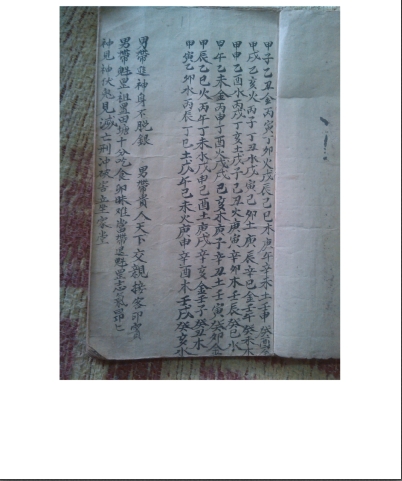 甲子乙丑金丙寅丁卯火戊辰己巳木庚午辛未土壬申癸酉金
甲戌乙亥火丙子丁丑水戊寅己卯土庚辰辛巳金壬午癸未木
甲申乙酉水丙戌丁亥土戊子己丑火庚寅辛卯木壬辰癸巳水
甲午乙未金丙申丁酉火戊戌己亥木庚子辛丑土壬寅癸卯金
甲辰乙巳火丙午丁未水戊申己酉土庚戌辛亥金壬子癸丑木
甲寅乙卯水丙辰丁巳土戊午己未火庚申辛酉木壬戌癸亥水
男帶進神身不脱銀 男帶貴人天下交親接客印賓
男帶魁罡祖置田塘十分吃食难當帶進魁罡志氣昂
神見神伏鬼見滅亡刑冲破害立家堂